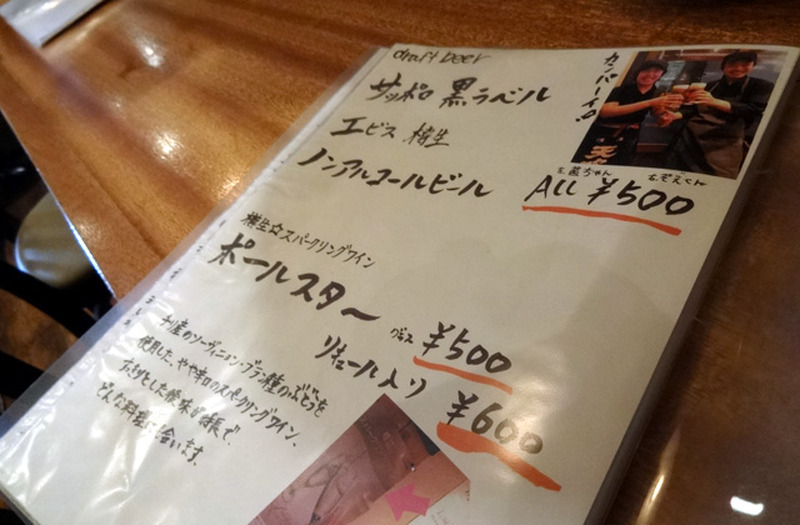 draft beer
サッポロ 黒ラベル
エビス 樽生
ノンアルコールビール
カンパーイ!
ALL ¥500
樽生☆スパークリングワイン
ポールスター
グラス ¥500
リキュール入り ¥600
チリ産のソーヴィニョン・ブラン種のぶどうを
使用した、やや辛口のスパークリングワイン、
すっきりとした後味が特長で、
どんな料理にも合います。